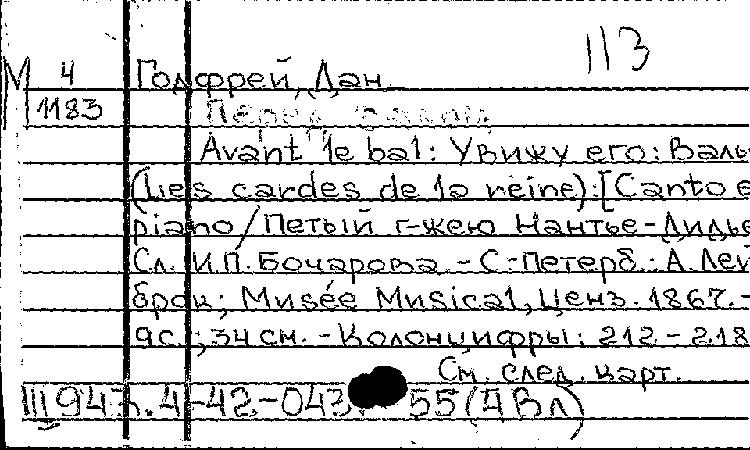 113
М 4 Годфрей, Дан
1183 Перед балом
Avant le bal: Увижу его: Валь
(Les cardes de la reine):[Canto e
piano/Петый г-жею Нантье-Дидье
Сл. И.П. Бочарова.-С.-Петерб.: А.Лей
брок; Musée Musical, Ценз. 1867.-
9с.; 34 см. - Колонцифры: 212-218
См. след. карт.
III 943.4-42-043 55(ABл)